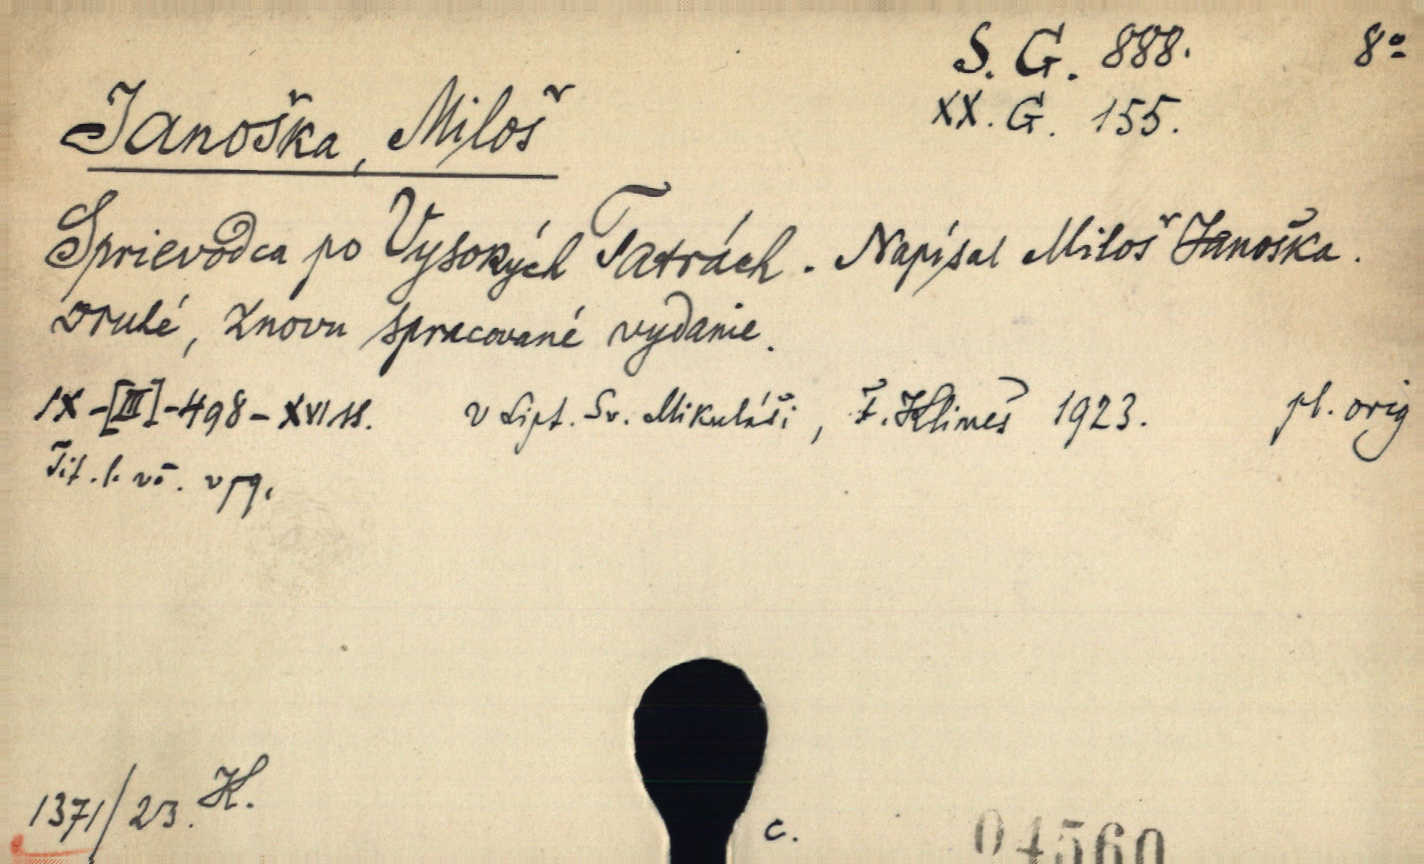 S. G. 888. 8º
XX. G. 155.
Janoška, Miloš
Sprievodca po Vysokých Tatrách. Napísal Miloš Janoška.
Druhé, znovu spracované vydanie.
IX-[III]-498-XVI s. v Lipt. Sv. Mikuláši, F. Klimeš 1923. pl. orig
Tit. l.
1371/23. K.
c.
04560